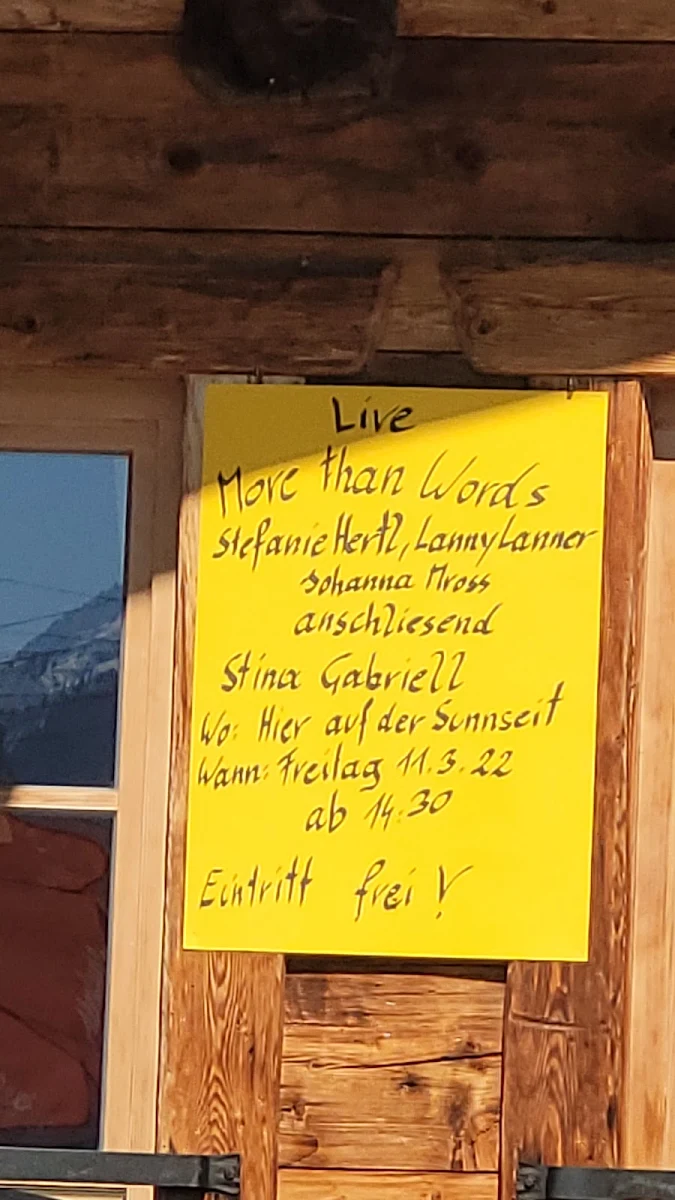 Live
More than Words
Stefanie Hertl, Lanny Lanner
Johanna Mross
anschliesend
Stina Gabriell
Wo: Hier auf der Sunnseit
Wann: Freitag 11.3.22
ab 14:30
Eintritt frei!